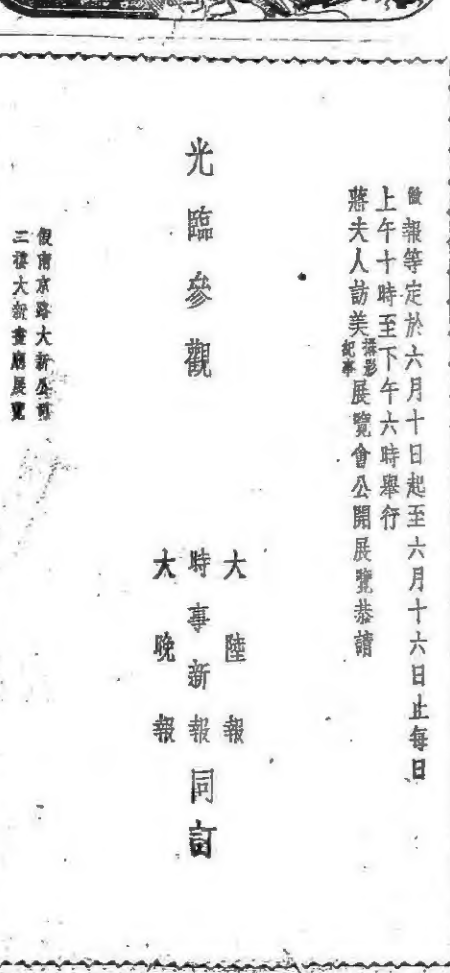 敝報等定於六月十日起至六月十六日止每日
上午十時至下午六時舉行
蔣夫人訪美攝影紀事展覽會公開展覽恭請
光臨參觀
大陸報
時事新報 同訂
大晚報
假南京路大新公司
二樓大新畫廳展覽